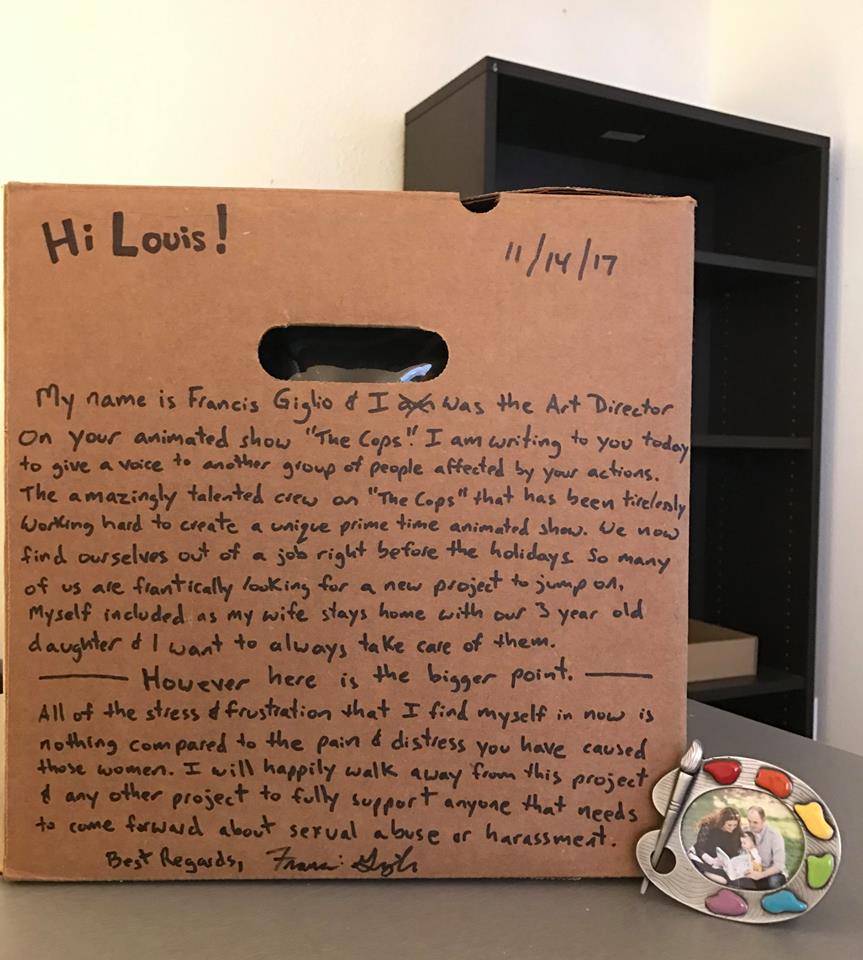 Hi Louis!
11/14/17
My name is Francis Giglio & I was the Art Director
on your animated show "The Cops". I am writing to you today
to give a voice to another group of people affected by your actions.
The amazingly talented crew on "The Cops" that has been tirelessly
working hard to create a unique prime time animated show. We now
find ourselves out of a job right before the holidays. So many
of us are frantically looking for a new project to jump on,
Myself included as my wife stays home with our 3 year old
daughter & I want to always take care of them.
— However here is the bigger point. —
All of the stress & frustration that I find myself in now is
nothing compared to the pain & distress you have caused
those women. I will happily walk away from this project
& any other project to fully support anyone that needs
to come forward about sexual abuse or harassment.
Best Regards, Francis Giglio